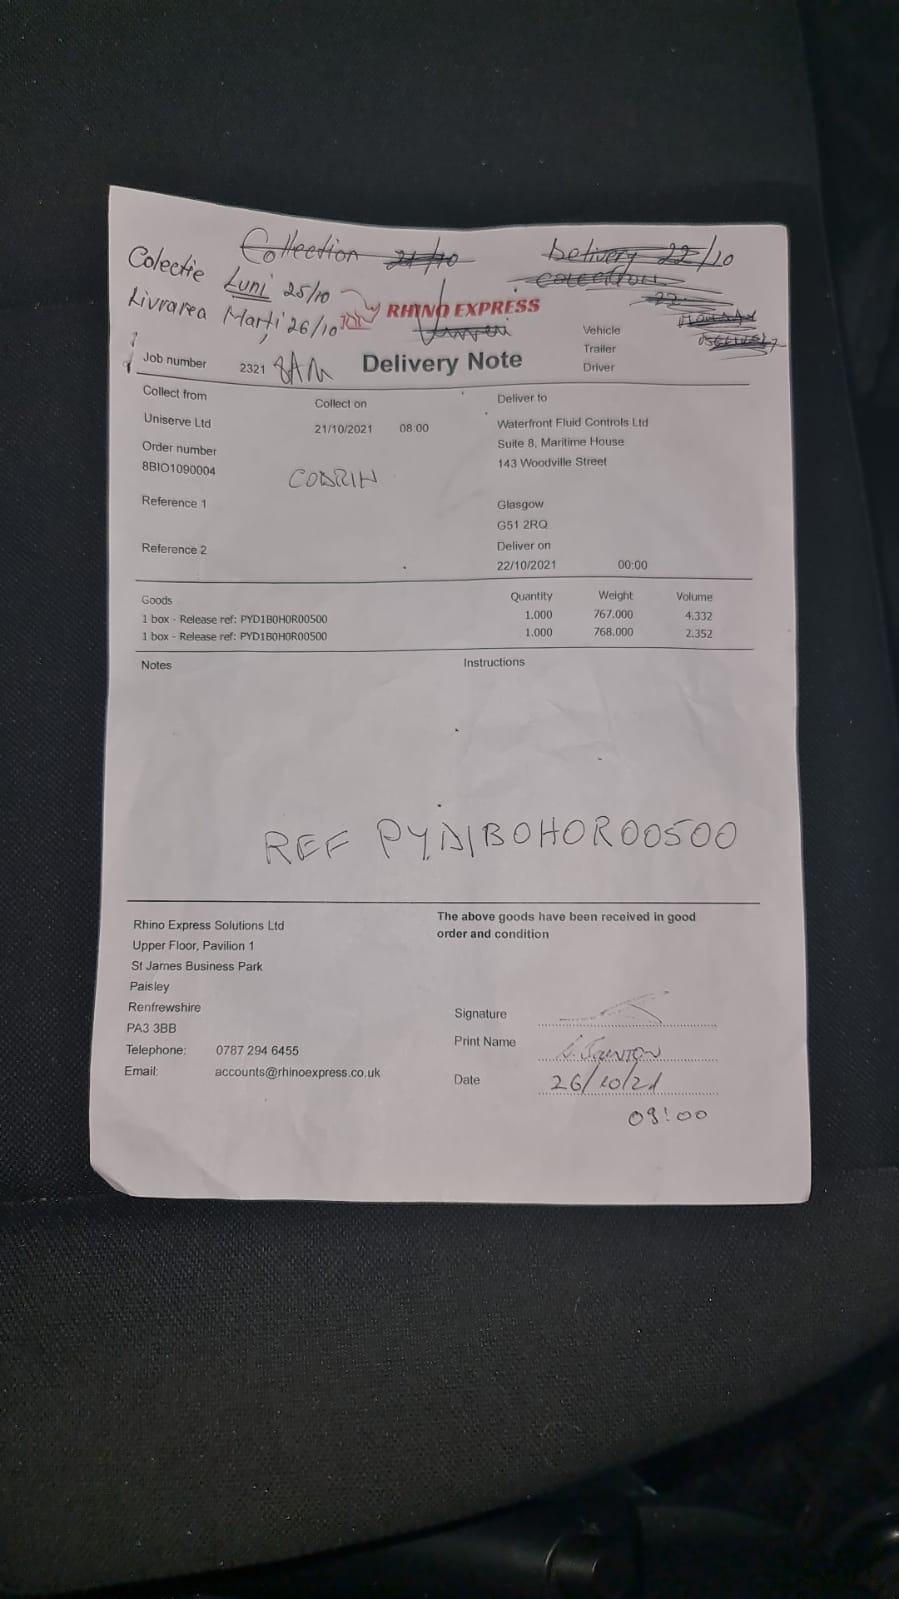 Collection 21/10
Delivery 22/10
Colectie Luni 25/10
Collection
22
Livrarea Marți 26/10
RHINO EXPRESS
Job number 2321 8AM
Delivery Note
Vehicle
Trailer
Driver
Collect from
Uniserve Ltd
Order number
8BIO1090004
Reference 1
Reference 2
Collect on
21/10/2021 08:00
CODRIN
Deliver to
Waterfront Fluid Controls Ltd
Suite 8, Maritime House
143 Woodville Street
Glasgow
G51 2RQ
Deliver on
22/10/2021 00:00
Goods Quantity Weight Volume
1 box - Release ref: PYD1B0H0R00500 1.000 767.000 4.332
1 box - Release ref: PYD1B0H0R00500 1.000 768.000 2.352
Notes Instructions
REF PYD1B0H0R00500
Rhino Express Solutions Ltd
Upper Floor, Pavilion 1
St James Business Park
Paisley
Renfrewshire
PA3 3BB
Telephone: 0787 294 6455
Email: accounts@rhinoexpress.co.uk
The above goods have been received in good
order and condition
Signature
Print Name
Date 26/10/21
08:00